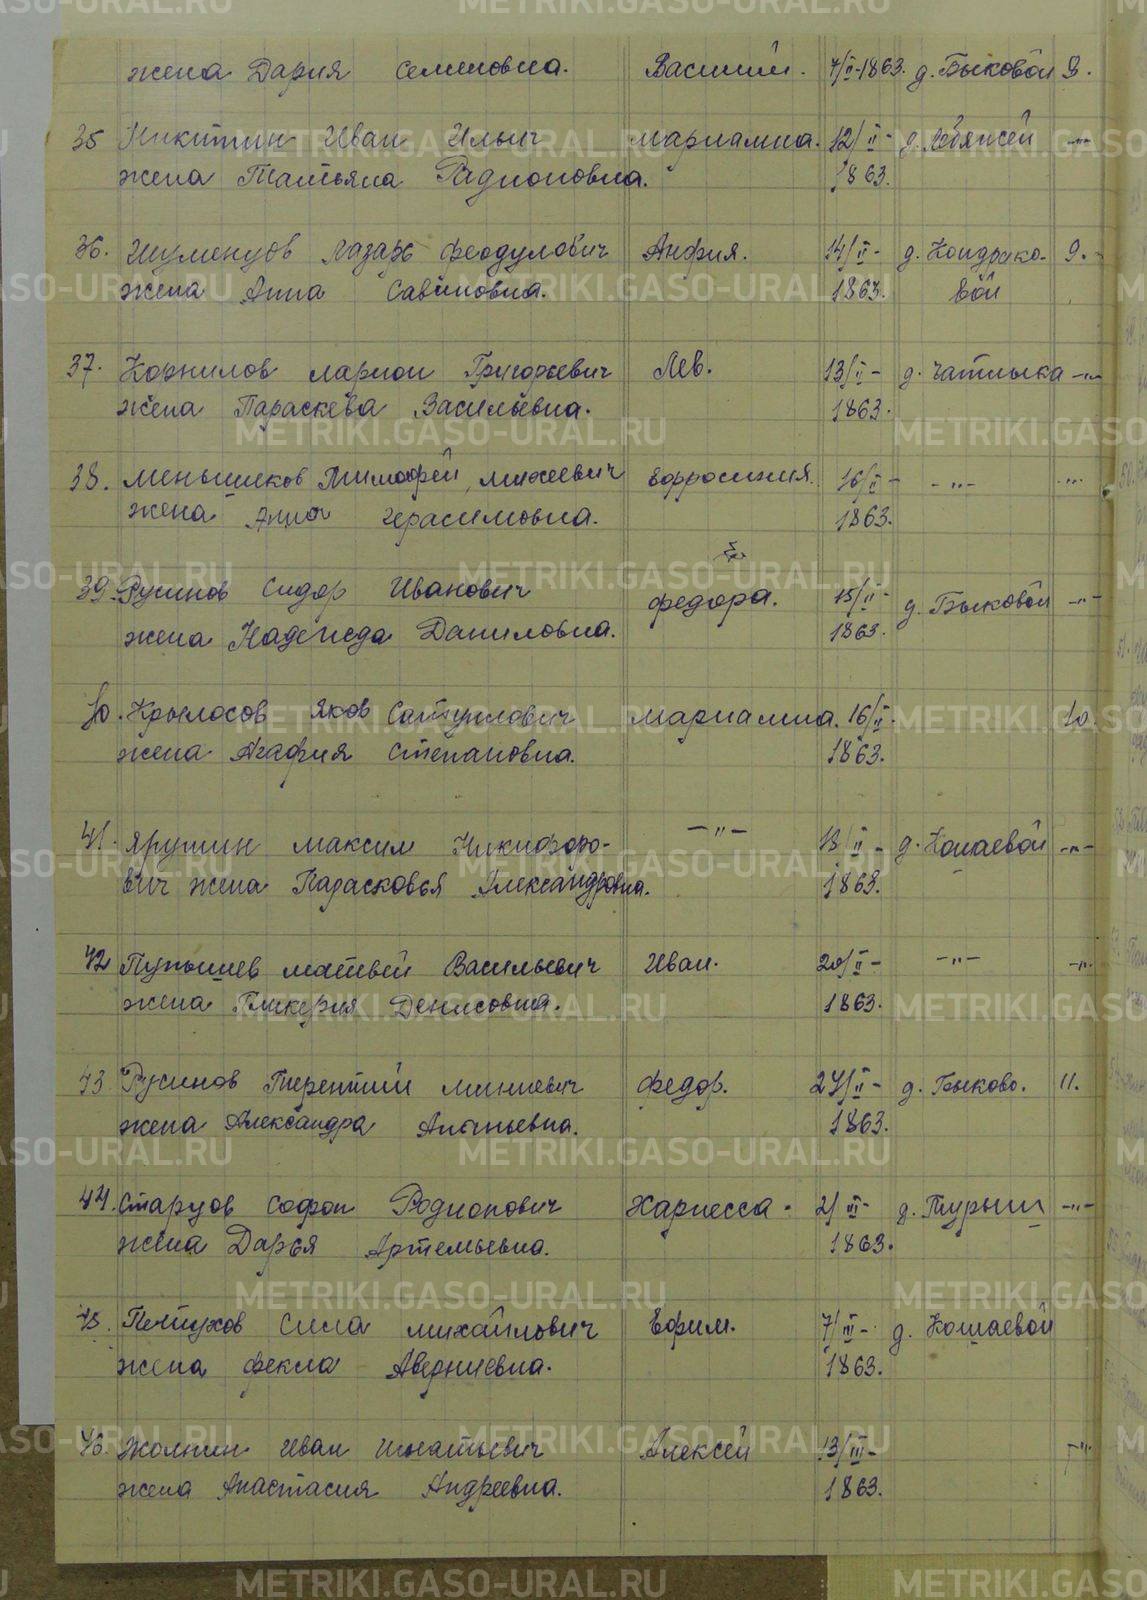 METRIKI.GASO-URAL.RU METRIKI.GASO-URAL.RU
жена Дария Семеновна. Василий. 7/II-1863. д. Быковой 9.
35 Никитин Иван Ильич Мариамна. 12/II- д. Лебяжей -"-
жена Татьяна Радионовна. 1863.
36. Шуменцов Лазарь Феодулович Анфия. 14/II- д. Кондрако- 9.-
жена Анна Савиновна. 1863. вой
37. Корнилов Ларион Григорьевич Лев. 13/II- д. Чатлыка -"-
жена Параскева Васильевна. 1863.
38. Меньшиков Тимофей Михеевич Ефросиния. 16/II- -"- -"-
жена Анна Герасимовна. 1863.
39. Русинов Сидор Иванович Федора. 15/II- д. Быковой -"-
жена Надежда Даниловна. 1863.
40. Крылосов Яков Самуилович Мариамна. 16/II- 10.
жена Агафия Степановна. 1863.
41. Ярушин Максим Никифоро- -"- 18/II- д. Кошаевой -"-
вич жена Парасковья Александровна. 1863.
42 Пупышев Матвей Васильевич Иван. 20/II- -"- -"-
жена Гликерия Денисовна. 1863.
43. Русинов Терентий Минеевич Федор. 24/II- д. Быково. 11.
жена Александра Ананьевна. 1863.
44. Старцов Софон Родионович Хариесса. 2/III- д. Турыш -"-
жена Дарья Артемьевна. 1863.
45. Петухов Сила Михайлович Ефим. 7/III- д. Кошаевой
жена Фекла Аверкиевна. 1863.
46. Жолнин Иван Игнатьевич Алексей 13/III- -"-
жена Анастасия Андреевна. 1863.
METRIKI.GASO-URAL.RU METRIKI.GASO-URAL.RU